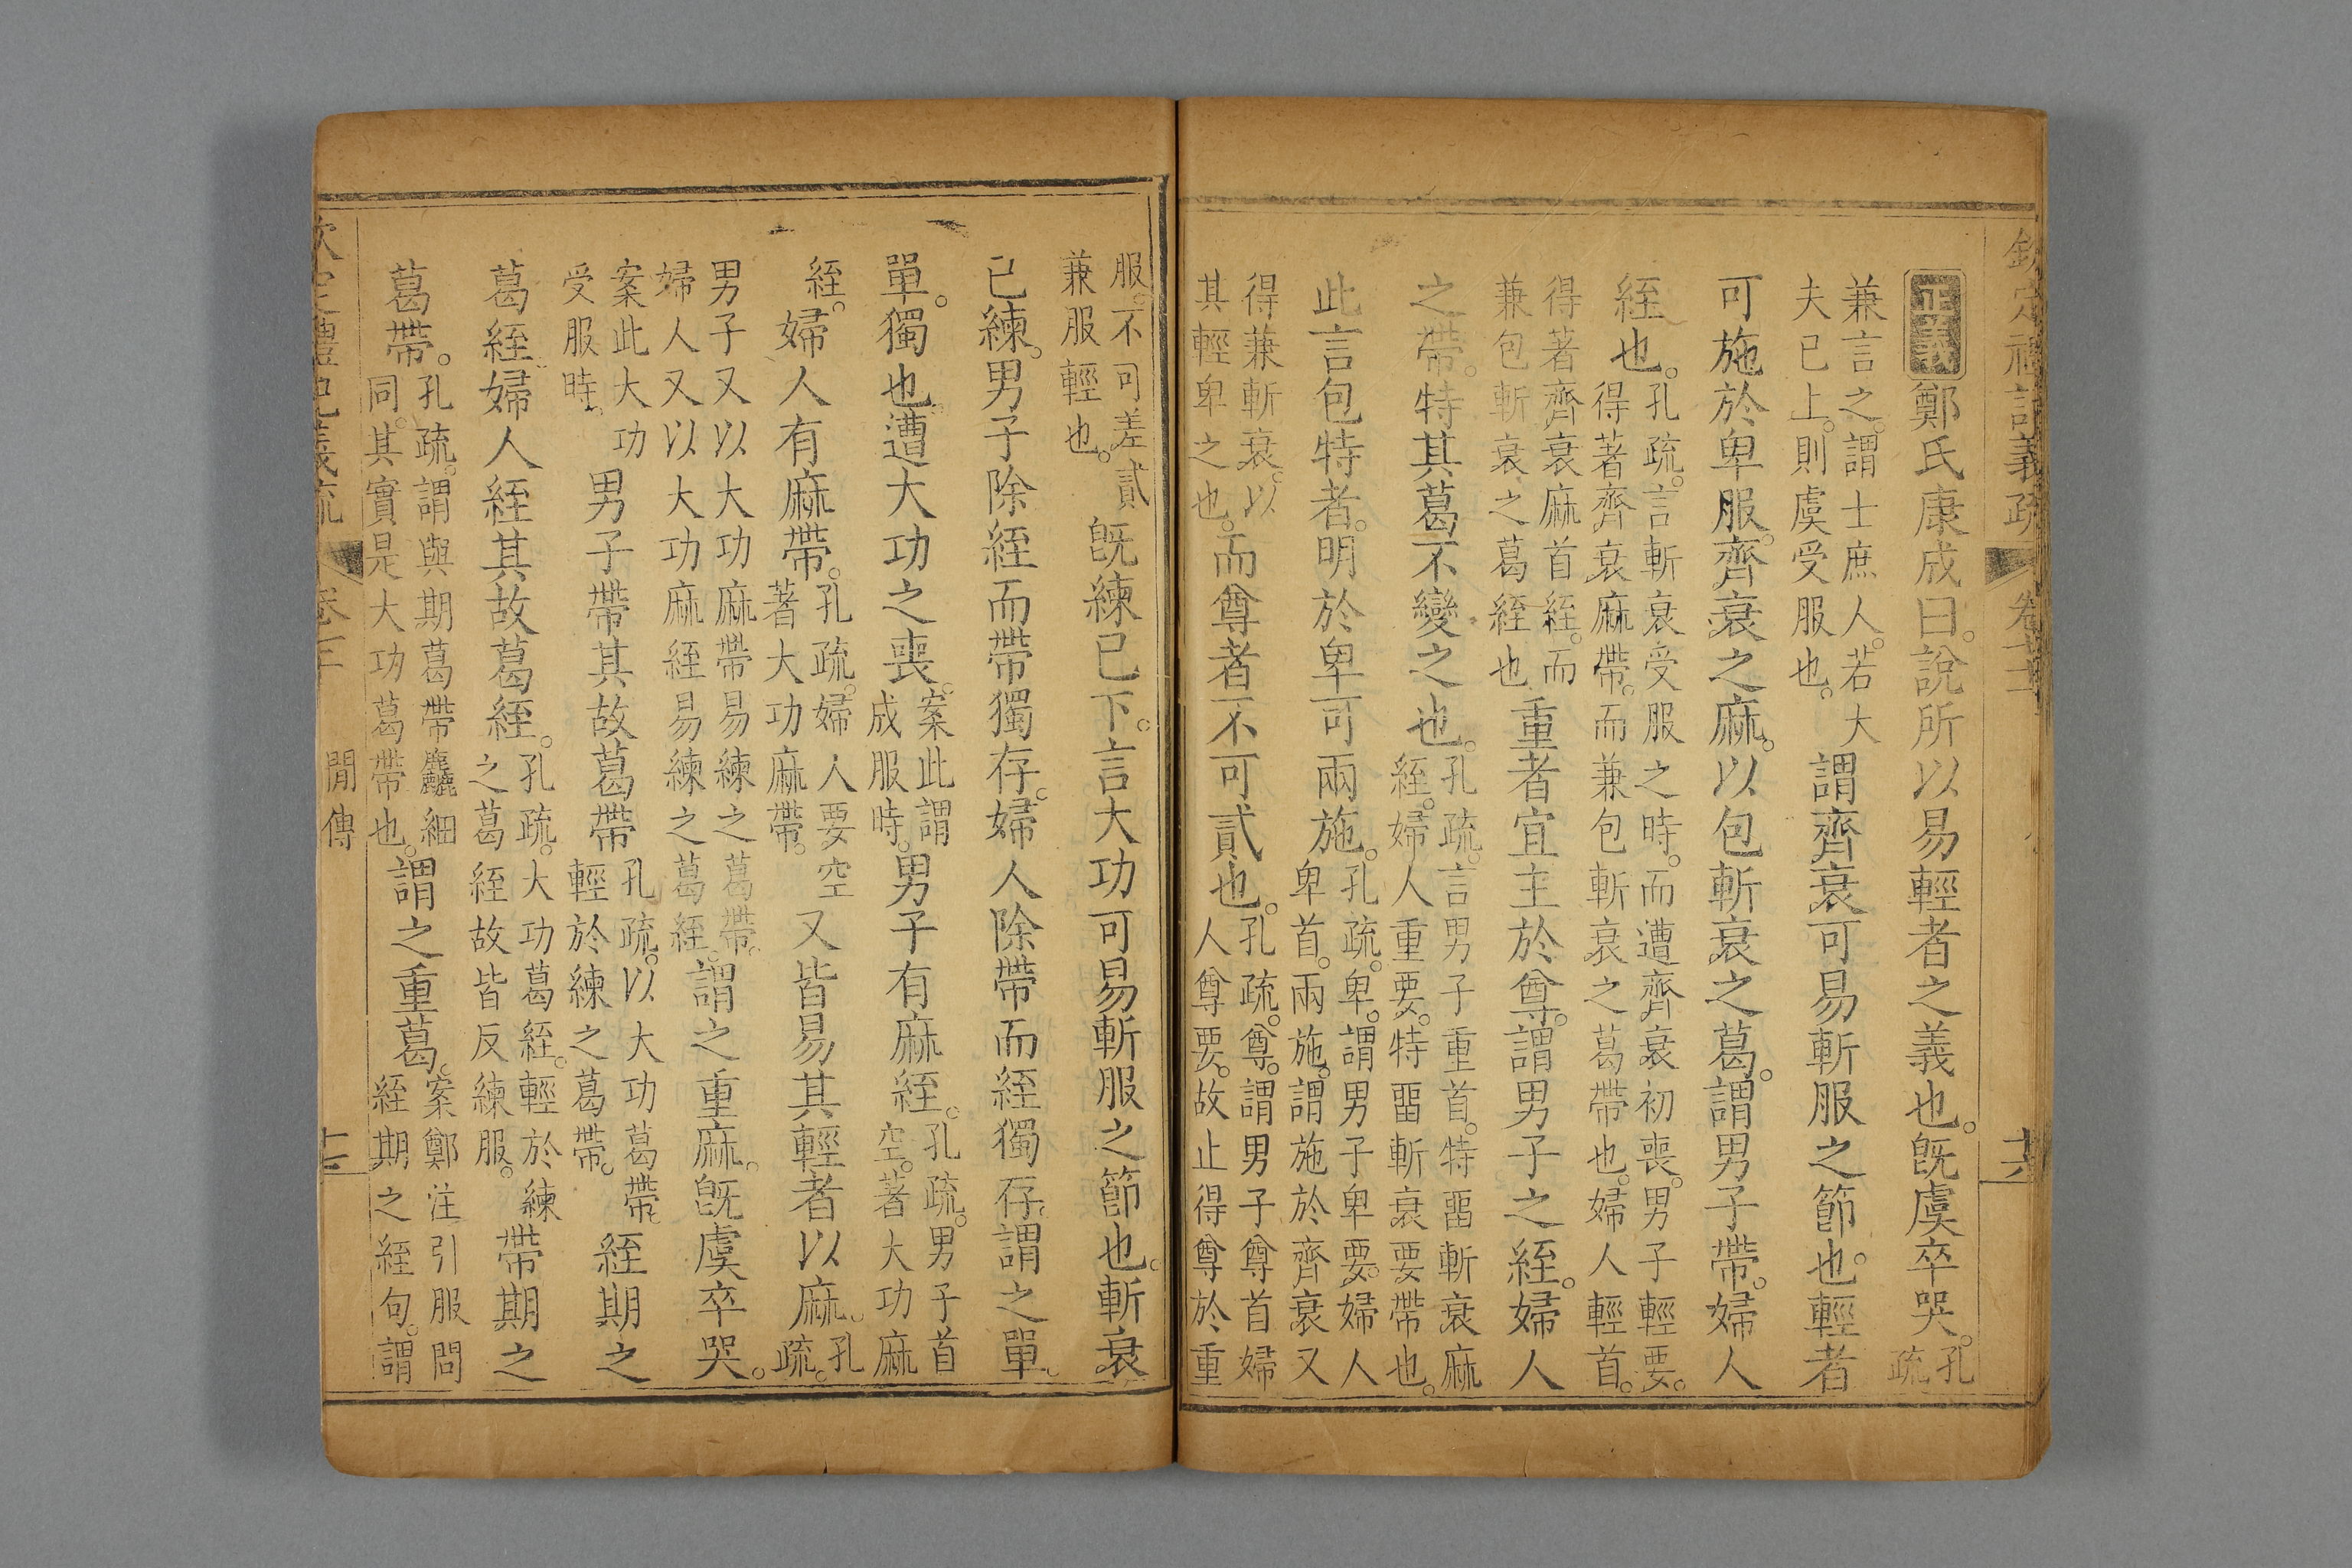 欽定禮記義疏 卷 十六
正義鄭氏康成曰。說所以易輕者之義也。旣虞卒哭。孔疏
兼言之。謂士庶人。若大夫已上。則虞受服也。謂齊衰可易斬服之節也。輕者
可施於卑服。齊衰之麻。以包斬衰之葛。謂男子帶。婦人
絰也。孔疏。言斬衰受服之時。而遭齊衰初喪。男子輕要。得著齊衰麻帶。而兼包斬衰之葛帶也。婦人輕首。
得著齊衰麻首絰。而兼包斬衰之葛絰也重者宜主於尊。謂男子之絰。婦人
之帶。特其葛不變之也。孔疏。言男子重首。特畱斬衰麻絰。婦人重要。特畱斬衰要帶也。
此言包特者。明於卑可兩施。孔疏。卑。謂男子卑要。婦人卑首。兩施。謂施於齊衰又
得兼斬衰。以其輕卑之也。而尊者不可貳也。孔疏。尊。謂男子尊首婦人尊要。故止得尊於重
服。不可差貳兼服輕也。旣練已下。言大功可易斬服之節也。斬衰
已練。男子除絰而帶獨存。婦人除帶而絰獨存。謂之單。
單。獨也。遭大功之喪。案此謂成服時。男子有麻絰。孔疏。男子首空。著大功麻
絰。婦人有麻帶。孔疏。婦人要空著大功麻帶。又皆易其輕者以麻。孔疏。
男子又以大功麻帶易練之葛帶。婦人又以大功麻絰易練之葛絰。謂之重麻。旣虞卒哭。
案此大功受服時。男子帶其故葛帶孔疏。以大功葛帶。輕於練之葛帶。絰期之
葛絰婦人絰其故葛絰。孔疏。大功葛絰。輕於練之葛絰故皆反練服。帶期之
葛帶。孔疏。謂與期葛帶麤細同。其實是大功葛帶也。謂之重葛。案鄭注引服問絰期之絰句。謂
間傳